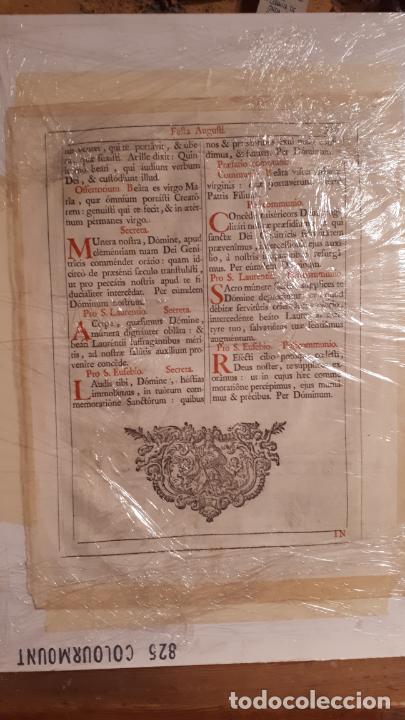 Festa Augusti.
qui te portavit, & ube-
suxisti. At ille dixit: Quin-
beati, qui audiunt verbum
Dei, & custodiunt illud.
Offertorium. Beáta es virgo Ma-
ría, quæ ómnium portásti Creató-
rem: genuísti qui te fecit, & in ætér-
num pérmanes virgo.
Secreta.
MUnera nostra, Dómine, apud
cleméntiam tuam Dei Geni-
tricis comméndet orátio: quam id-
círco de præsénti sæculo transtulísti,
ut pro peccátis nostris apud te fi-
duciáliter intercédat. Per eúmdem
Dóminum nostrum.
Pro S. Laurentio. Secreta.
ACcipe, quæsumus Dómine,
múnera dignánter obláta: &
beáti Lauréntii suffragántibus méri-
tis, ad nostræ salútis auxílium prove-
níre concéde.
Pro S. Eusebio. Secreta.
LAudis tibi, Dómine, hóstias
immolámus, in tuórum com-
memoratióne Sanctórum: quibus
nos & præséntibus éxui malis con-
fídimus, & futúris. Per Dóminum.
Præfatio
Communio. Beáta víscera
vírginis: quæ portavérunt
Patris Fílium.
Postcommunio.
COncéde miséricors Deus, fra-
gilitáti nostræ præsídium: ut qui
sanctæ Dei Genitrícis
prævenímus, intercessiónis ejus auxí-
lio, à nostris iniquitátibus resur-
gámus. Per eúmdem Dóminum.
Pro S. Laurentio. Postcommunio.
SAcro múnere súpplices te
Dómine deprecámur:
débitæ servitútis
intercedénte beáto Lauréntio
tyre tuo, salvatiónis tuæ sentiámus
augméntum.
Pro S. Eusebio. Postcommunio.
REfécti cibo potúque cælésti,
Deus noster, te súpplices ex-
orámus: ut in cujus hæc comme-
moratióne percépimus, ejus muniá-
mur & précibus. Per Dóminum.
IN
825 COLOURMOUNT
todocoleccion.net